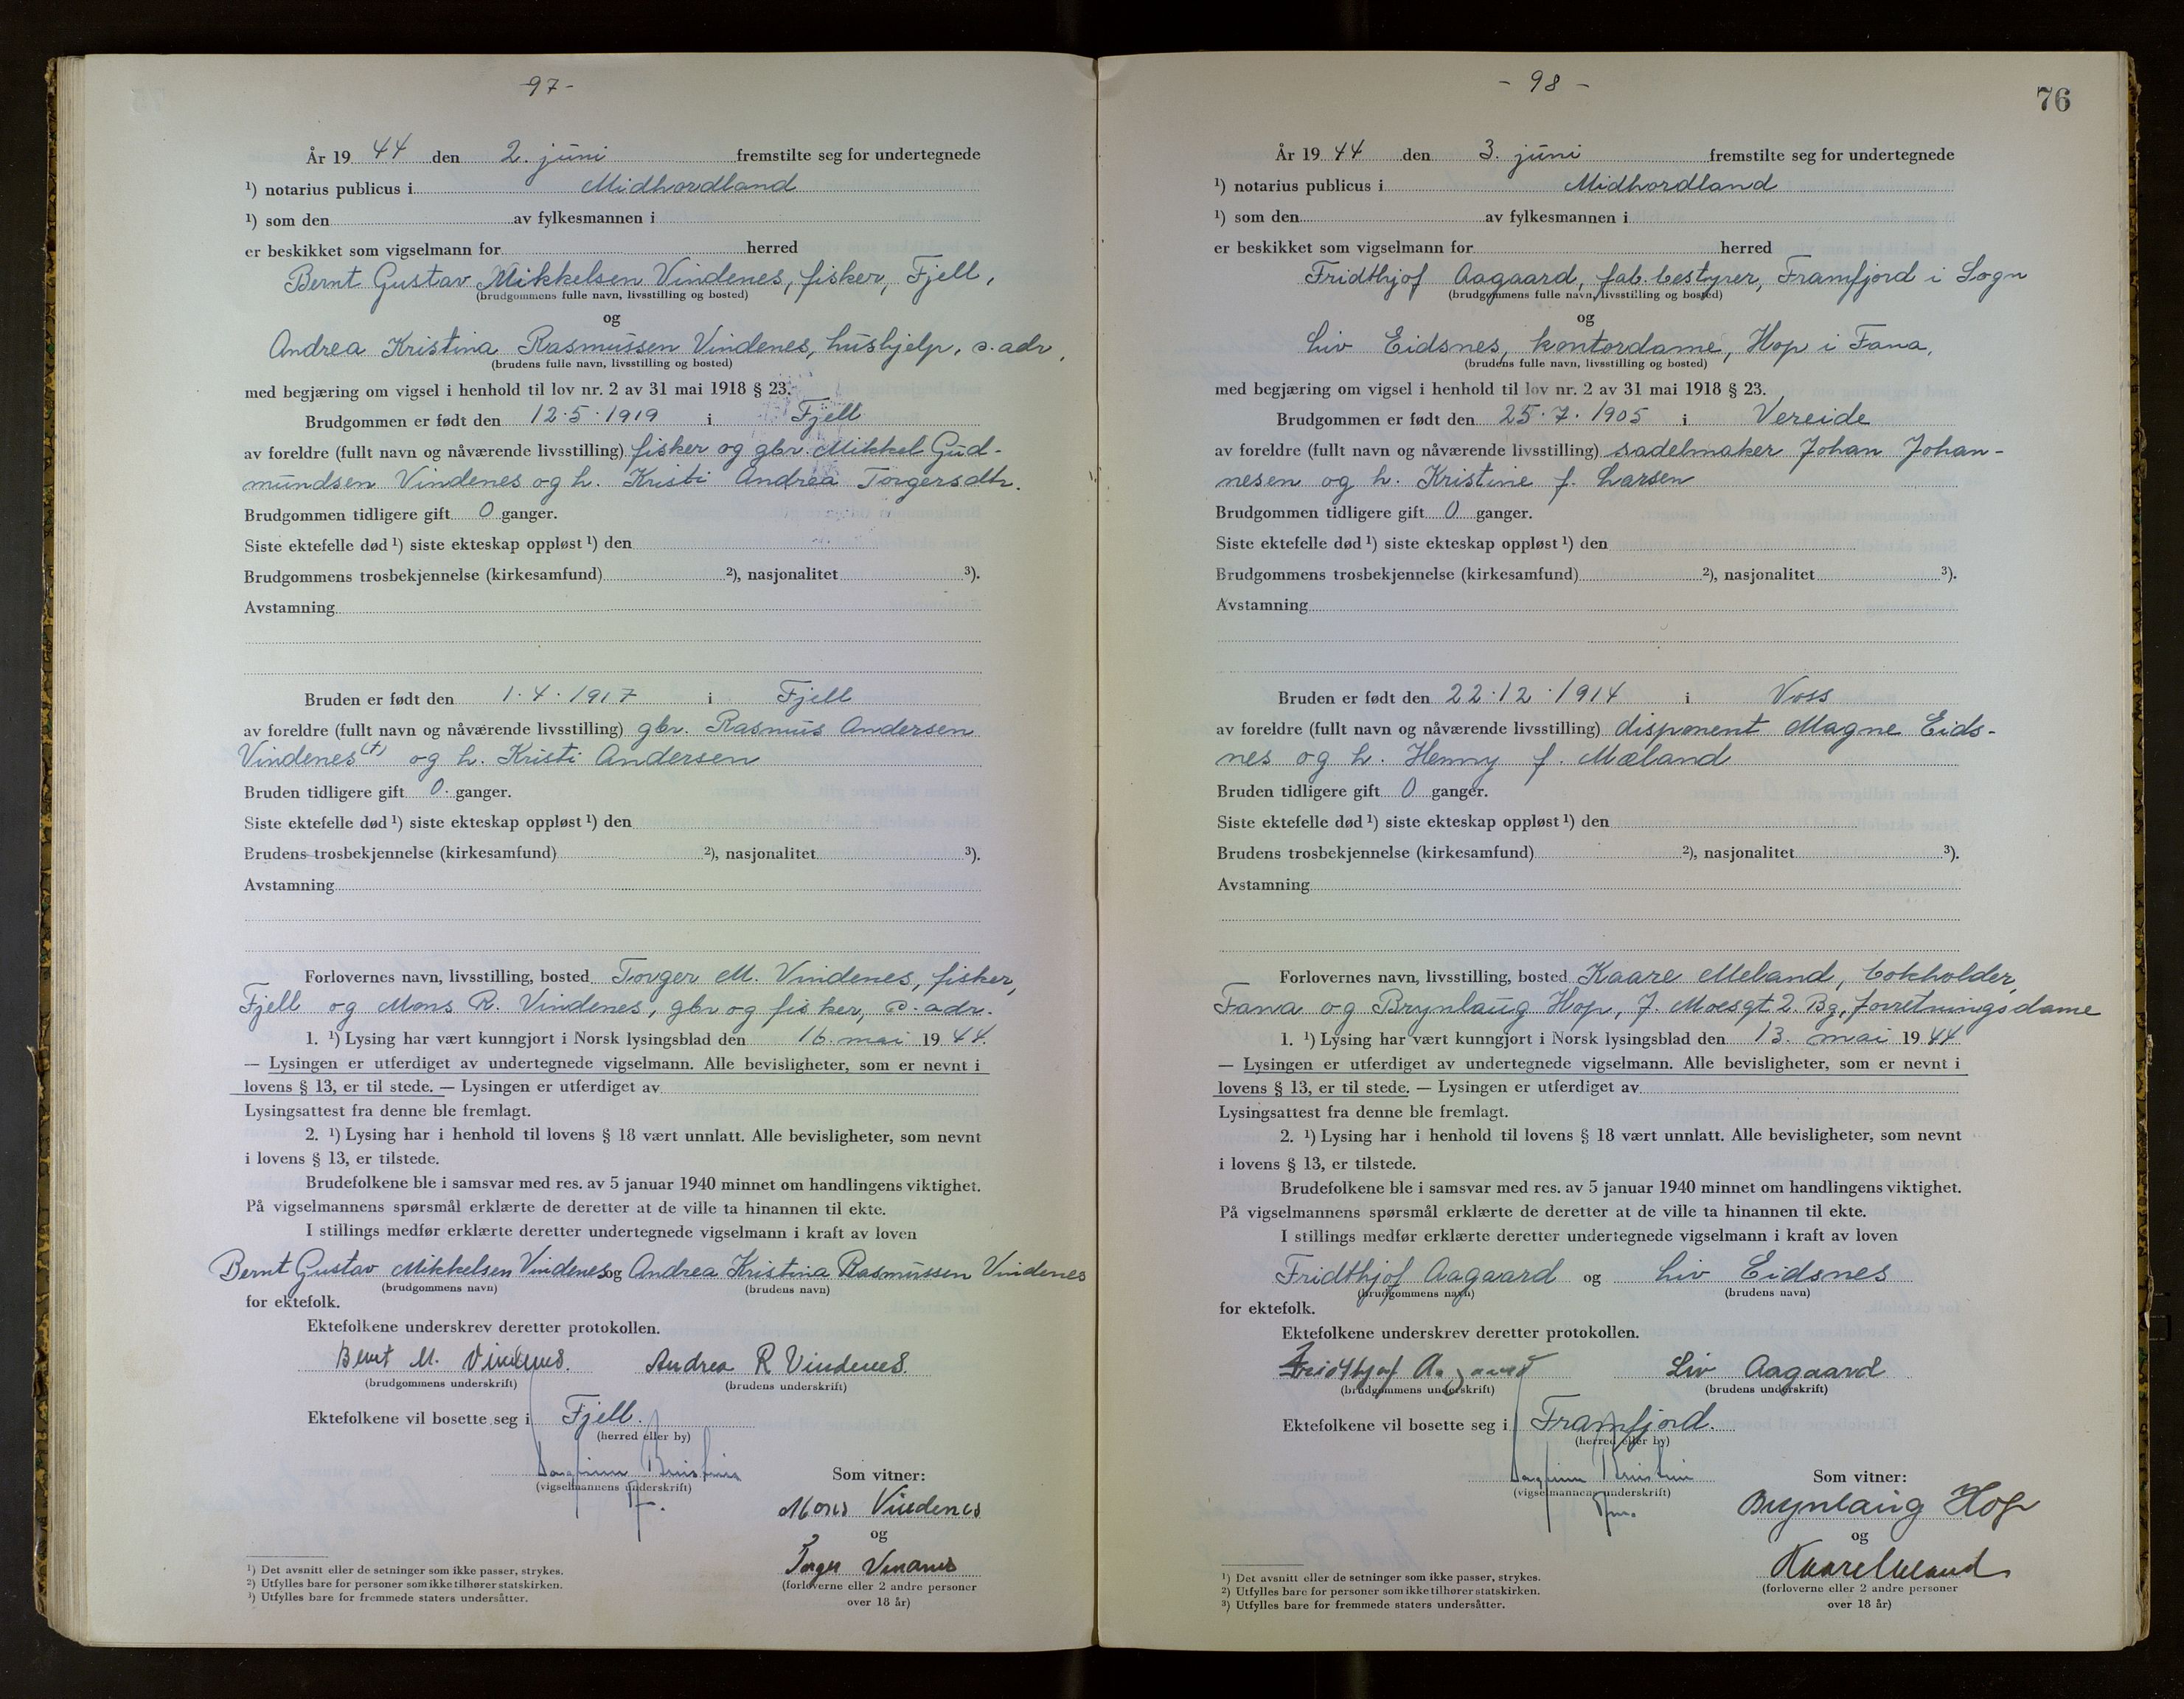 -97-
År 19 44 den 2. juni fremstilte seg for undertegnede
¹) notarius publicus i Midhordland
¹) som den av fylkesmannen i
er beskikket som vigselmann for herred
Bernt Gustav Mikkelsen Vindenes, fisker, Fjell,
(brudgommens fulle navn, livsstilling og bosted)
og
Andrea Kristina Rasmussen Vindenes, hushjelp, s. adr,
(brudens fulle navn, livsstilling og bosted)
med begjæring om vigsel i henhold til lov nr. 2 av 31 mai 1918 § 23.
Brudgommen er født den 12.5.1919 i Fjell
av foreldre (fullt navn og nåværende livsstilling) fisker og gbr. Mikkel Gud-
mundsen Vindenes og h. Kristi Andrea Torgersdtr.
Brudgommen tidligere gift 0 ganger.
Siste ektefelle død ¹) siste ekteskap oppløst ¹) den
Brudgommens trosbekjennelse (kirkesamfund) ²), nasjonalitet ³).
Avstamning
Bruden er født den 1.4.1917 i Fjell
av foreldre (fullt navn og nåværende livsstilling) gbr. Rasmus Andersen
Vindenes (†) og h. Kristi Andersen
Bruden tidligere gift 0. ganger.
Siste ektefelle død ¹) siste ekteskap oppløst ¹) den
Brudens trosbekjennelse (kirkesamfund) ²), nasjonalitet ³).
Avstamning
Forlovernes navn, livsstilling, bosted Torger M. Vindenes, fisker,
Fjell og Mons R. Vindenes, gbr og fisker, s. adr.
1. ¹) Lysing har vært kunngjort i Norsk lysingsblad den 16. mai 19 44.
— Lysingen er utferdiget av undertegnede vigselmann. Alle bevisligheter, som er nevnt i
lovens § 13, er til stede. — Lysingen er utferdiget av
Lysingsattest fra denne ble fremlagt.
2. ¹) Lysing har i henhold til lovens § 18 vært unnlatt. Alle bevisligheter, som nevnt
i lovens § 13, er tilstede.
Brudefolkene ble i samsvar med res. av 5 januar 1940 minnet om handlingens viktighet.
På vigselmannens spørsmål erklærte de deretter at de ville ta hinannen til ekte.
I stillings medfør erklærte deretter undertegnede vigselmann i kraft av loven
Bernt Gustav Mikkelsen Vindenes og Andrea Kristina Rasmussen Vindenes
(brudgommens navn) (brudens navn)
for ektefolk.
Ektefolkene underskrev deretter protokollen.
Bernt M. Vindenes. Andrea R Vindenes.
(brudgommens underskrift) (brudens underskrift)
Ektefolkene vil bosette seg i Fjell.
(herred eller by)
Som vitner:
(vigselmannens underskrift)
Mons Vindenes
og
Torger Vindnes
(forloverne eller 2 andre personer
over 18 år)
¹) Det avsnitt eller de setninger som ikke passer, strykes.
²) Utfylles bare for personer som ikke tilhører statskirken.
³) Utfylles bare for fremmede staters undersåtter.
- 98 -
76
År 19 44 den 3. juni fremstilte seg for undertegnede
¹) notarius publicus i Midhordland
¹) som den av fylkesmannen i
er beskikket som vigselmann for herred
Fridthjof Aagaard, fab.bestyrer, Framfjord i Sogn
(brudgommens fulle navn, livsstilling og bosted)
og
Liv Eidsnes, kontordame, Hop i Fana,
(brudens fulle navn, livsstilling og bosted)
med begjæring om vigsel i henhold til lov nr. 2 av 31 mai 1918 § 23.
Brudgommen er født den 25.7.1905 i Vereide
av foreldre (fullt navn og nåværende livsstilling) sadelmaker Johan Johan-
nesen og h. Kristine f. Larsen
Brudgommen tidligere gift 0 ganger.
Siste ektefelle død ¹) siste ekteskap oppløst ¹) den
Brudgommens trosbekjennelse (kirkesamfund) ²), nasjonalitet ³).
Avstamning
Bruden er født den 22.12.1914 i Voss
av foreldre (fullt navn og nåværende livsstilling) disponent Magne Eids-
nes og h. Henny f. Mæland
Bruden tidligere gift 0 ganger.
Siste ektefelle død ¹) siste ekteskap oppløst ¹) den
Brudens trosbekjennelse (kirkesamfund) ²), nasjonalitet ³).
Avstamning
Forlovernes navn, livsstilling, bosted Kaare Meland, bokholder,
Fana og Brynlaug Hop, J. Moesgt 2. Bg, forretningsdame
1. ¹) Lysing har vært kunngjort i Norsk lysingsblad den 13. mai 19 44
— Lysingen er utferdiget av undertegnede vigselmann. Alle bevisligheter, som er nevnt i
lovens § 13, er til stede. — Lysingen er utferdiget av
Lysingsattest fra denne ble fremlagt.
2. ¹) Lysing har i henhold til lovens § 18 vært unnlatt. Alle bevisligheter, som nevnt
i lovens § 13, er tilstede.
Brudefolkene ble i samsvar med res. av 5 januar 1940 minnet om handlingens viktighet.
På vigselmannens spørsmål erklærte de deretter at de ville ta hinannen til ekte.
I stillings medfør erklærte deretter undertegnede vigselmann i kraft av loven
Fridthjof Aagaard og Liv Eidsnes
(brudgommens navn) (brudens navn)
for ektefolk.
Ektefolkene underskrev deretter protokollen.
Fridthjof Aagaard Liv Aagaard
(brudgommens underskrift) (brudens underskrift)
Ektefolkene vil bosette seg i Framfjord.
(herred eller by)
Som vitner:
(vigselmannens underskrift)
Brynlaug Hop
og
Kaare Meland
(forloverne eller 2 andre personer
over 18 år)
¹) Det avsnitt eller de setninger som ikke passer, strykes.
²) Utfylles bare for personer som ikke tilhører statskirken.
³) Utfylles bare for fremmede staters undersåtter.